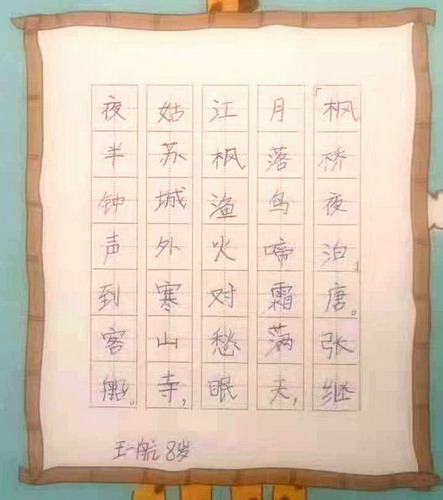 「枫桥夜泊」唐。张继
月落鸟啼霜满天，
江枫渔火对愁眠
姑苏城外寒山寺，
夜半钟声到客船。
王一航 8岁